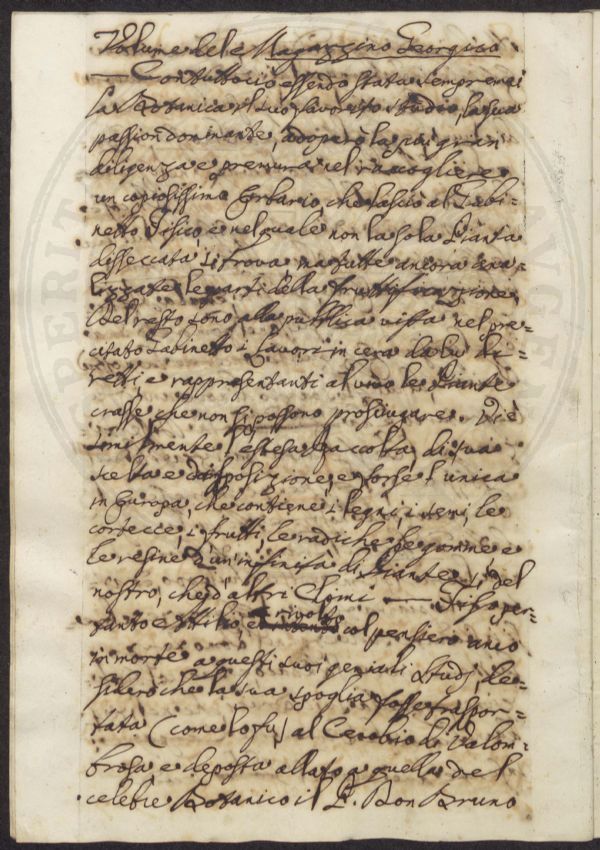 Volume del Magazzino Georgico
— Contuttociò essendo stata sempremai
la Botanica il suo favorito studio, la sua
passion dominante, adoperò la più gran
diligenza e premura nel raccogliere
un copiosissimo Erbario che lasciò al Gabi=
netto Fisico, e nel quale non la sola Pianta
disseccata si trova ma tutte ancora ana=
lizzate le parti della fruttificazione
Del resto sono alla pubblica vista nel pre=
citato Gabinetto i lavori in cera da lui di=
retti e rappresentanti al vivo le Piante
crasse che non si possono prosciugare. Vi è
similmente l'estesa raccolta di sua
scelta e disposizione, e forse l'unica
in Europa, che contiene i legni, i semi, le
cortecce, i frutti, le radiche le gomme e
le resine d'un infinità di Piante sì del
nostro, che d'altri Climi —
tanto e rivolto col pensiero anco
in morte a questi suoi geniali Studj, de=
siderò che la sua spoglia fosse traspor=
tata (come lo fu) al Cenobio di Valom=
brosa e deposta allato a quella del
celebre Botanico il P. Don Bruno